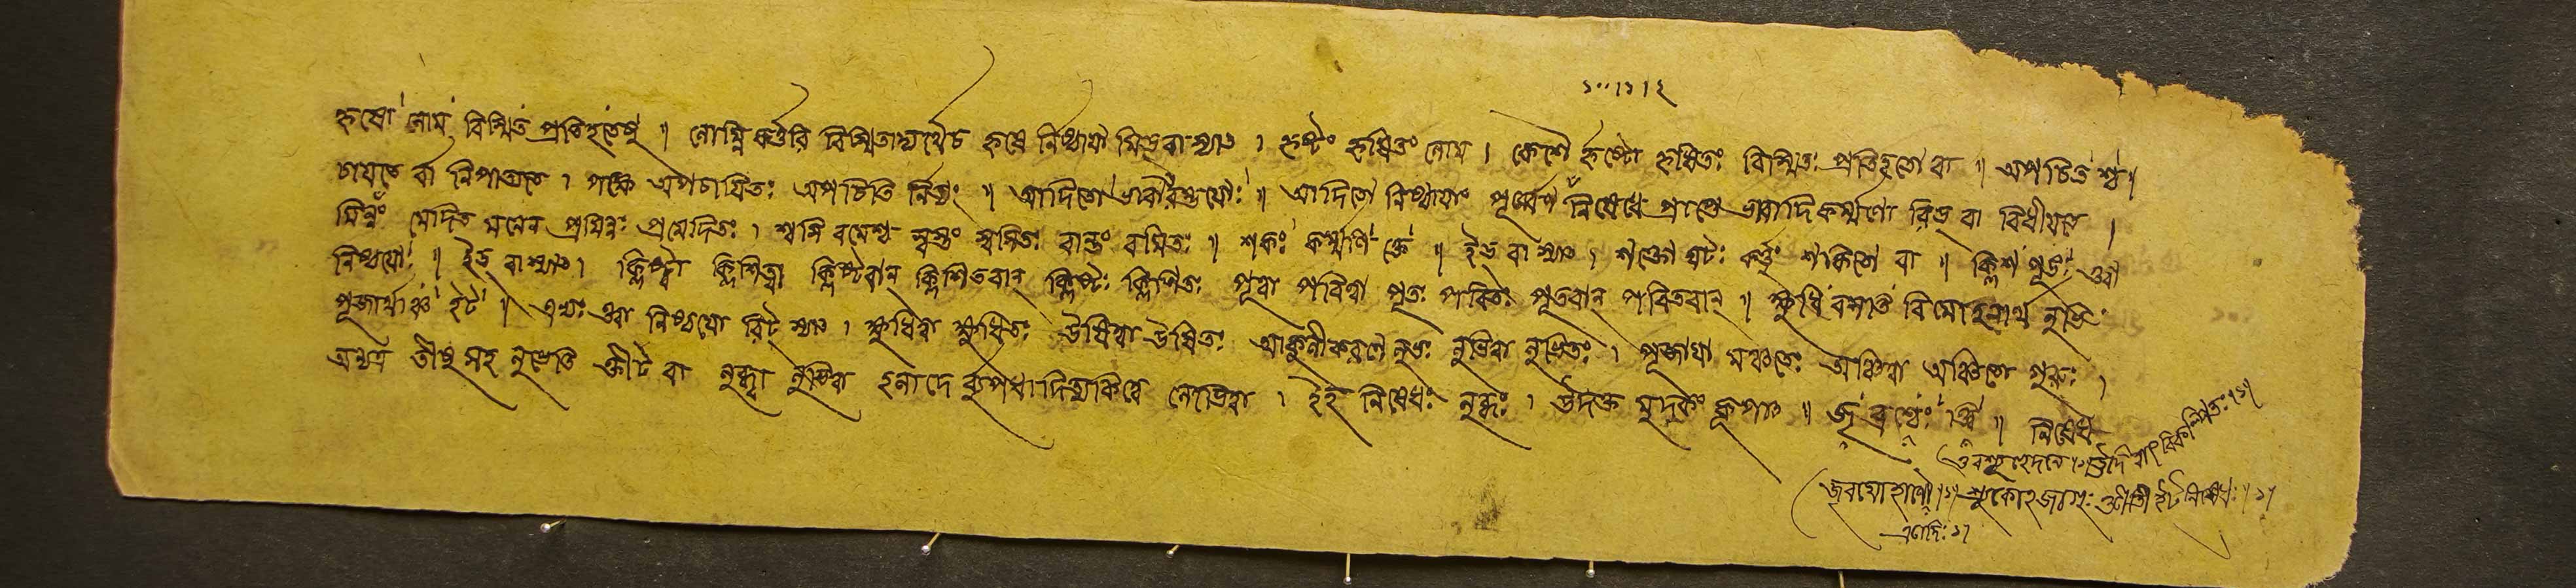 ১০০।১।২
হৃষো লোম বিস্মিত প্রতিহতেষু ॥ লোম্নি কর্ত্তরি বিস্মিতাদ্যর্থেচ হৃষে র্নিষ্ঠায়া মিড্ বা স্যাৎ । হৃষ্টং হৃষিতং লোম । কেশৈ র্হৃষ্টো হৃষিতঃ বিস্মিতঃ প্রতিহতো বা ॥ অপচিতশ্চ ॥
চায়তে র্বা নিপাত্যতে । পক্ষে অপচায়িতঃ অপচিতি র্নিত্যং ॥ আদিতো ভাবারম্ভয়োঃ ॥ আদিতো নিষ্ঠায়াং পূর্ব্বেণ নিষেধে প্রাপ্তে ভাবাদিকর্ম্মণো রিড্ বা বিধীয়তে ।
মিন্নং মেদিত মনেন প্রমিন্নঃ প্রমেদিতঃ । শ্বসি বমেশ্চ শ্বস্তঃ শ্বসিতঃ বান্তঃ বমিতঃ ॥ শকঃ কর্ম্মণি ক্তে ॥ ইড্ বা স্যাৎ । শক্তো ঘটঃ কর্ত্তুং শকিতো বা ॥ ক্লিশ পূঙঃ ক্ত্বা
নিষ্ঠয়োঃ ॥ ইড্ বা স্যাৎ । ক্লিষ্ট্বা ক্লিশিত্বা ক্লিষ্টবান্ ক্লিশিতবান্ ক্লিষ্টঃ ক্লিশিতঃ পূত্বা পবিত্বা পূতঃ পবিতঃ পূতবান্ পবিতবান্ ॥ ক্ষুধি বসতি বিমোহনার্থ লুভি
পূজার্থাঞ্চ ইট্ ॥ এভ্যঃ ক্ত্বা নিষ্ঠয়ো রিট্ স্যাৎ । ক্ষুধিত্বা ক্ষুধিতঃ উষিত্বা উষিতঃ আকুলীকরণে লুভঃ লুভিত্বা লুভিতঃ । পূজায়া মঞ্চতেঃ অঞ্চিত্বা অঞ্চিতো গুরুঃ ।
অন্যত্র তীষু সহ লুভেতি ক্ত্বীট্ বা লুব্ধ্বা লুভিত্বা হলাদে র্ব্যুপধাদিত্যকিত্ত্বে লোভিত্বা । ইহ নিষেধঃ লুব্ধঃ । উদক্ত মুদকং কূপাৎ ॥ জৄ ব্রশ্চেঃ ক্ত্বি ॥ নিষেধে
ওব্রশ্চূ ছেদনে ।১। ঊদিত্বাৎ বিকল্পিতঃ ।১।
জৄ বয়োহানৌ ।১। শ্র্যুকোহজাগৃঃ ক্তীতী ইট নিষেধঃ ।১।